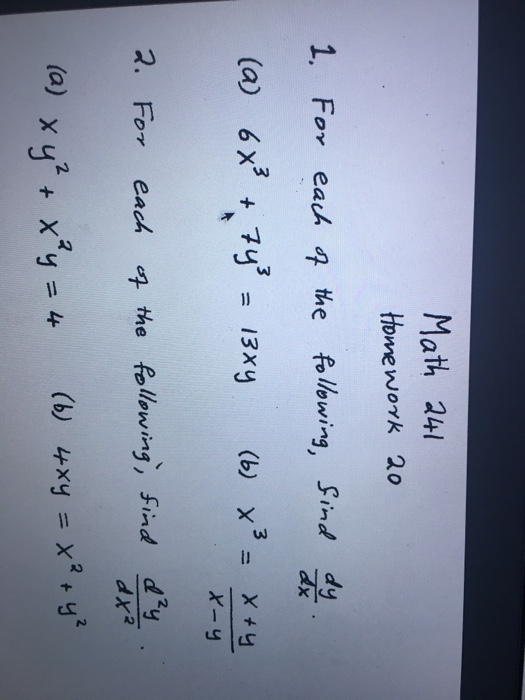 Math 241
Homework 20
1. For each of the following, find dy/dx.
(a) 6x³ + 7y³ = 13xy (b) x³ = x+y/x-y
2. For each of the following, find d²y/dx².
(a) xy² + x²y = 4 (b) 4xy = x² + y²